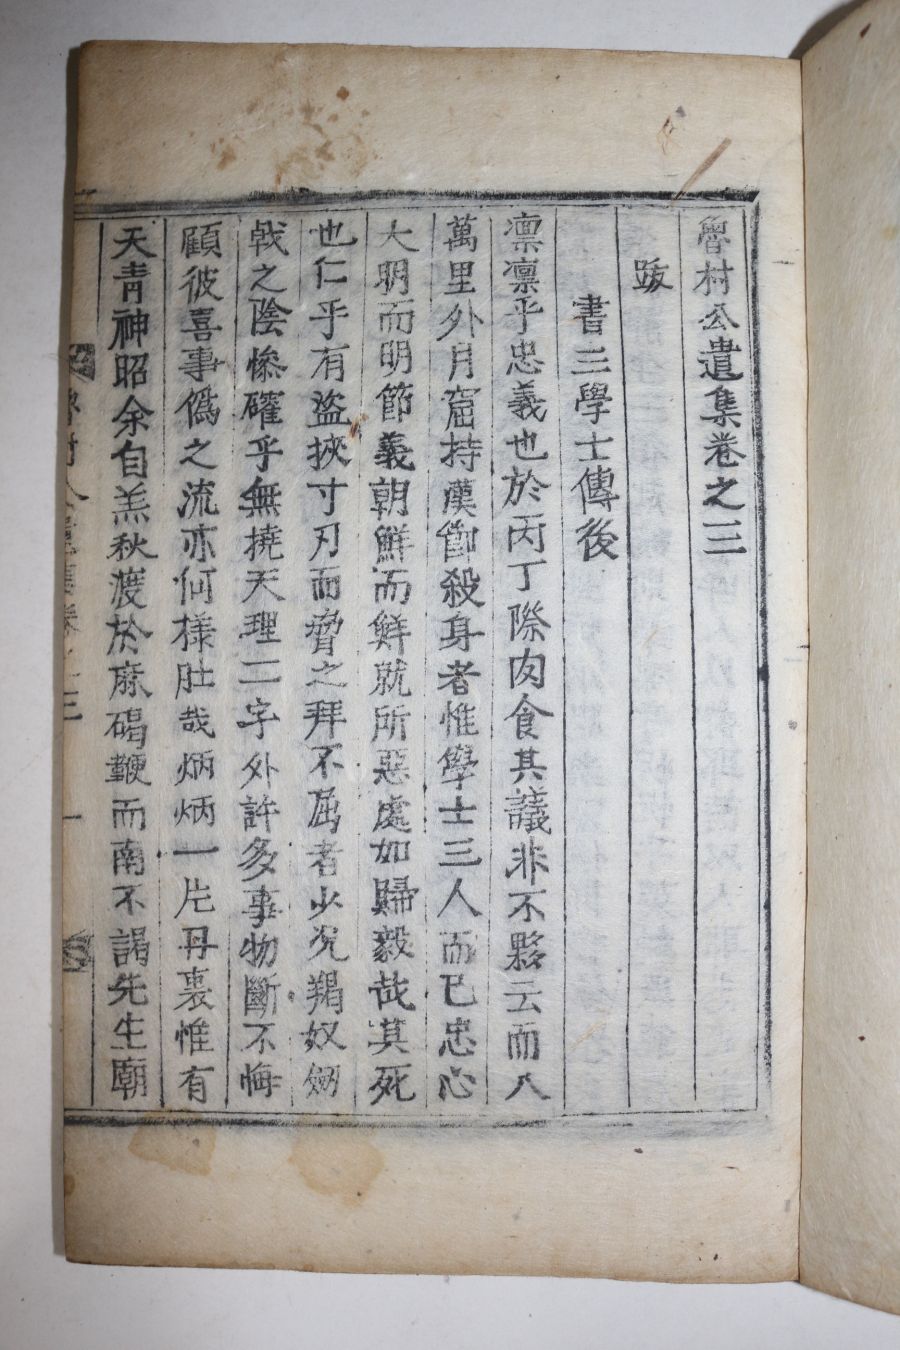 魯村公遺集卷之三
跋
書三學士傳後
凛凛乎忠義也於丙丁際肉食其議非不夥云而八
萬里外月窟持漢節殺身者惟學士三人而已忠心
大明而明節義朝鮮而鮮就所惡處如歸毅哉其死
也仁乎有盜挾寸刃而脅之拜不屈者少况羯奴劒
戟之陰慘確乎無撓天理二字外許多事物斷不悔
顧彼喜事僞之流亦何樣肚哉炳炳一片丹裏惟有
天青神昭余自羔秋渡於麻碣鞭而南不謁先生廟
魯村公遺集卷之三 一